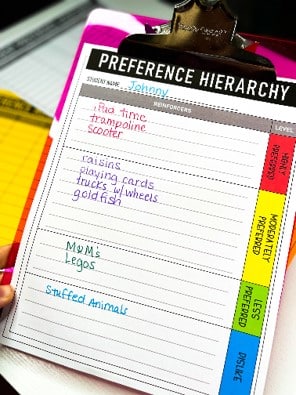 PREFERENCE HIERARCHY
STUDENT NAME Johnny
REINFORCERS
LEVEL
iPad time
trampoline
scooter
HIGHLY PREFERRED
raisins
playing cards
trucks w/wheels
goldfish
MODERATELY PREFERRED
M&M's
Legos
LESS PREFERRED
Stuffed Animals
DISLIKE